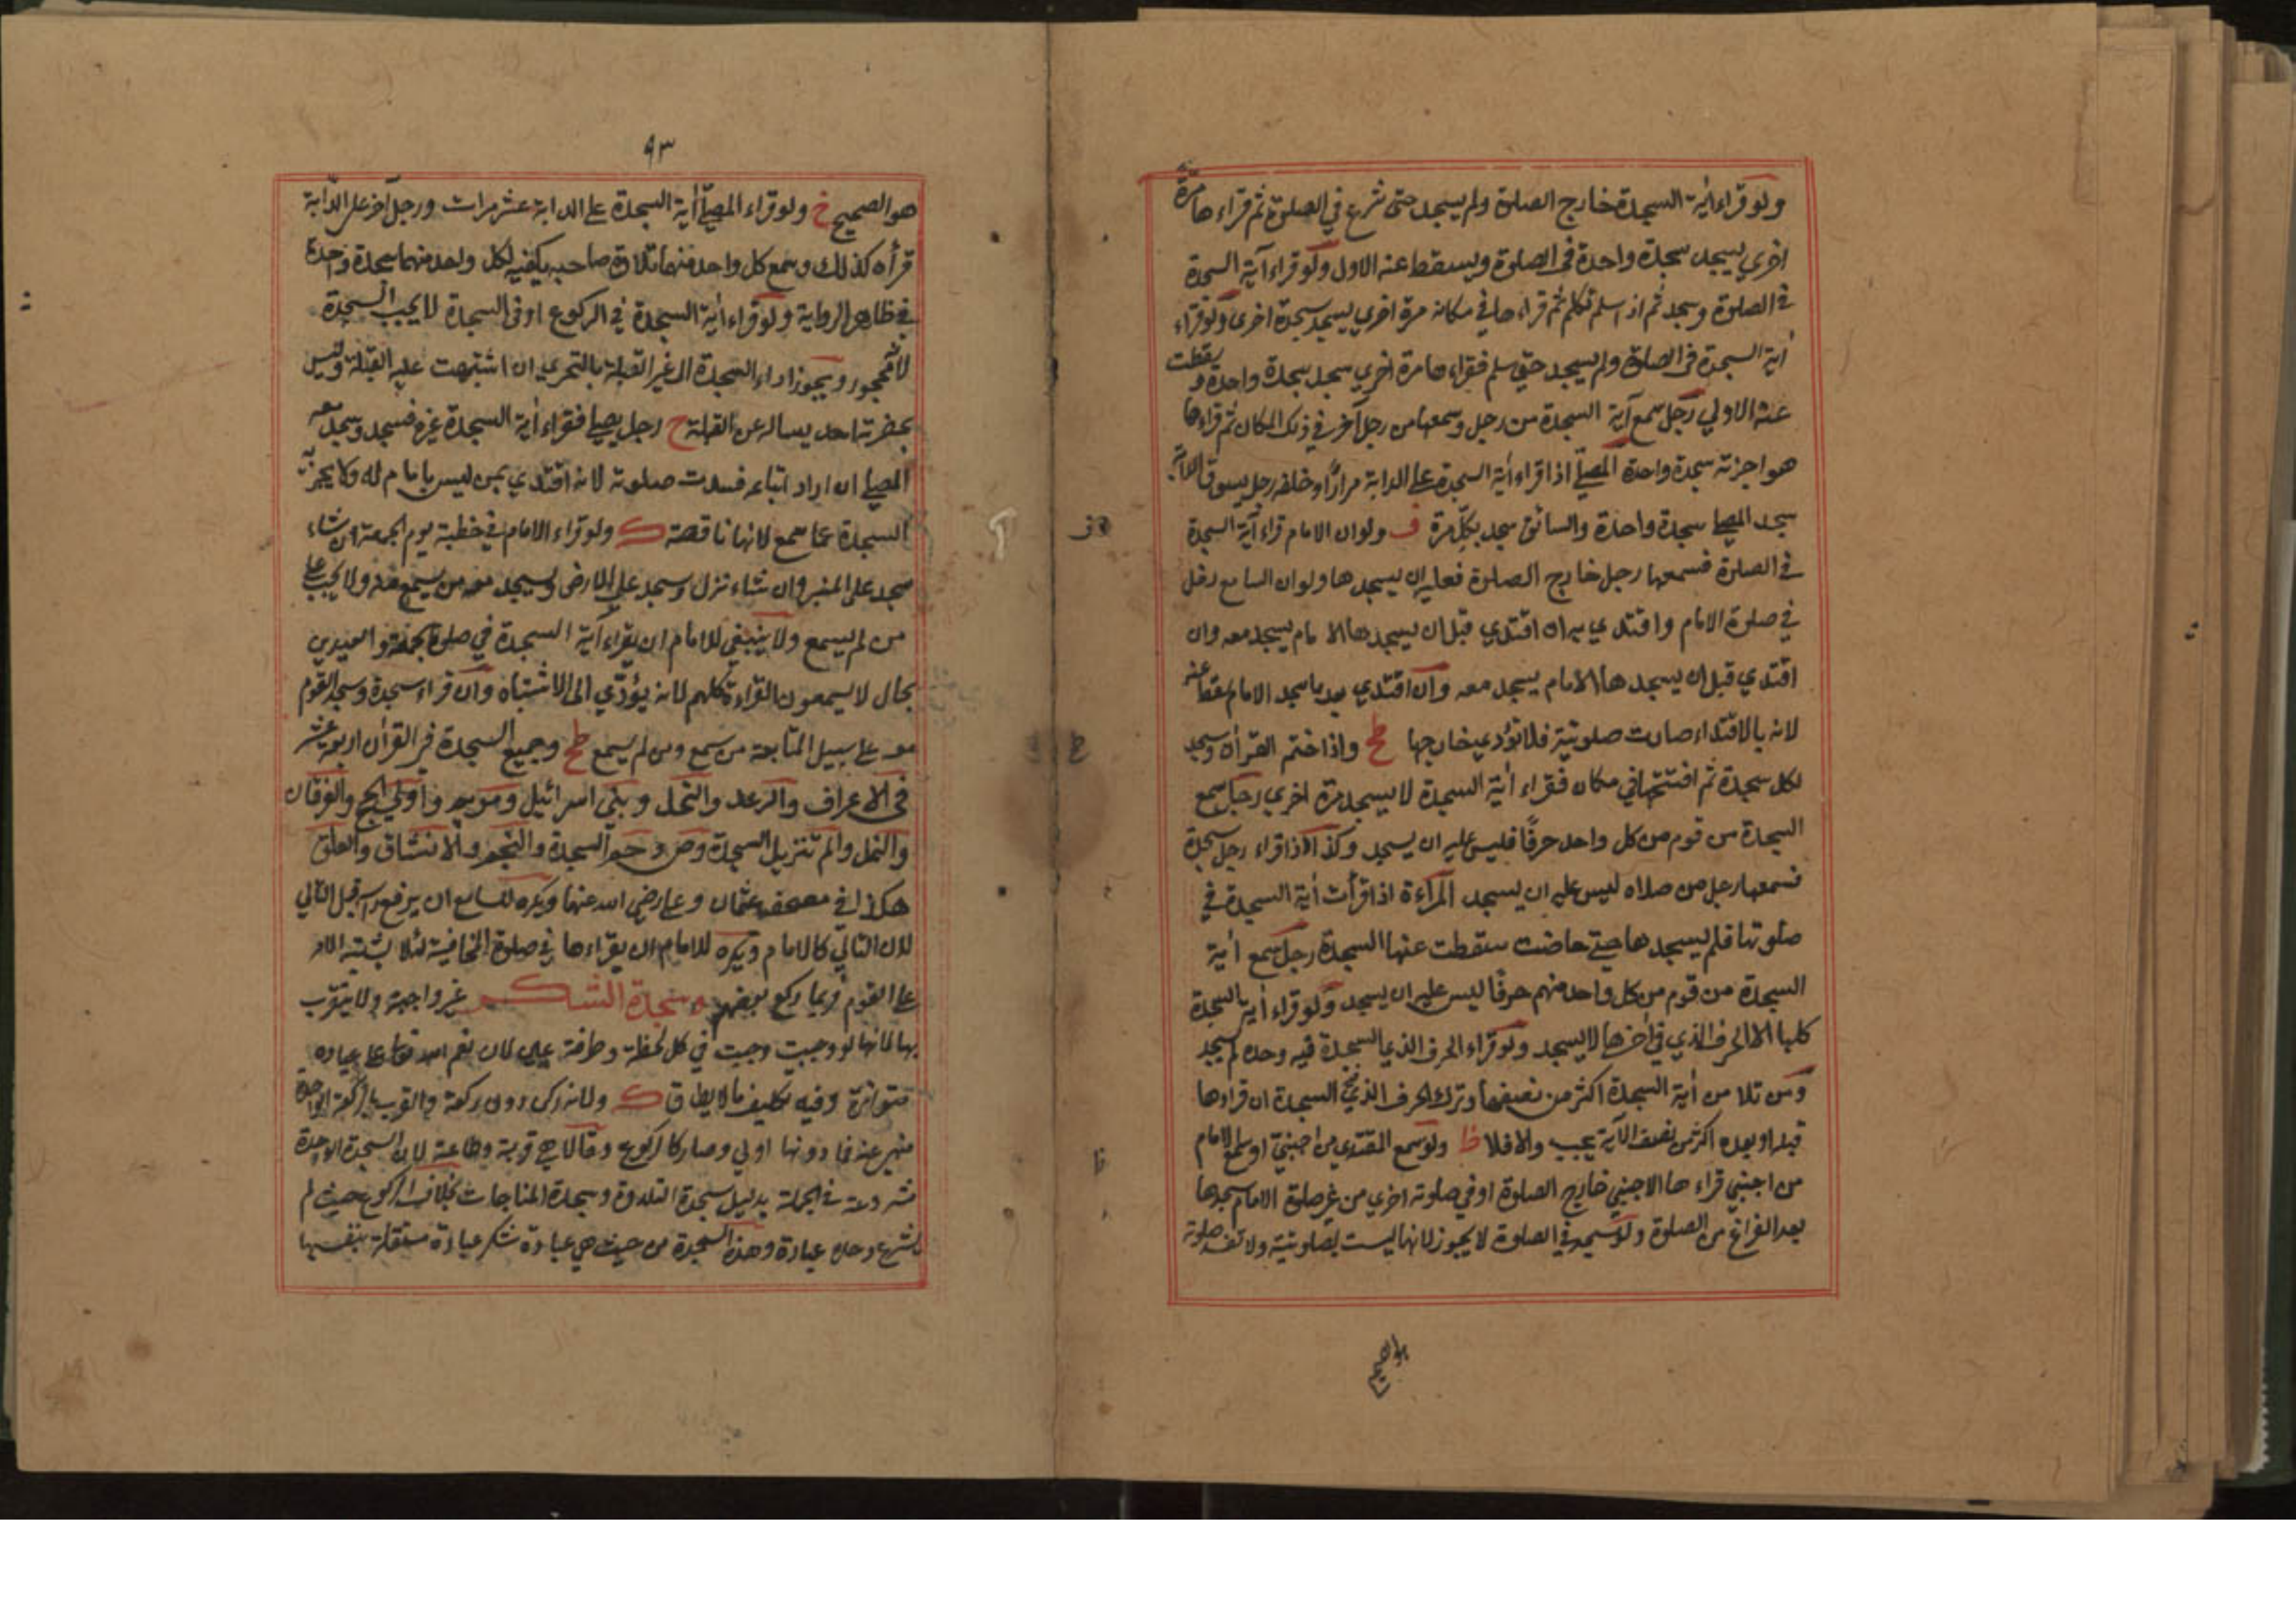 ولو قراء اٰية السجدة خارج الصلوة ولم يسجد حتى شرع في الصلوة ثم قراء ها مرة
اخري يسجد سجدة واحدة في الصلوة ويسقط عنه الاول ولو قراء آية السجدة
في الصلوة وسجد ثم اذ اسلم تكلم ثم قراء ها في مكانه مرة اخري يسجد سجدة اخرى ولو قراء
اٰية السجدة في الصلوة ولم يسجد حتي سلم فقراء ها مرة اخري سجد سجدة واحدة و يقطت
عنه الاولي رجل سمع آية السجدة من رجل وسمعها من رجل آخر في ذلك المكان ثم قراءها
هو اجزته سجدة واحدة المصلّي اذا قراء اٰية السجدة علے الدابة مرارًا وخلفه رجل يسوق الدابة
سجد المصلے سجدة واحدة والسائق سجد بكلّ مرة ف ولو ان الامام قراء آية السجدة
في الصلوة فسمعها رجل خارج الصلوة فعليه ان يسجد ها ولو ان السامع دخل
في صلوة الامام واقتدي به ان اقتدي قبل ان يسجدها الا مام يسجد معه وان
اقتدي قبل ان يسجد ها الامام يسجد معه وان اقتدي بعد ما سجد الامام سقط عنه
لانه بالاقتداء صارت صلوتية فلا تؤدي خارجها ظح واذا ختم القرأن وسجد
لكل سجدة ثم افتتحها في مكان فقراء اٰية السجدة لا يسجد مرة اخري رجل سمع
السجدة من قوم من كل واحد حرفًا فليس عليه ان يسجد وكذا اذا قراء رجل سجدة
فسمعها رجل من صلاه ليس عليه ان يسجد المرأة اذا قرأت اٰية السجدة في
صلوتها فلم يسجد ها حتے حاضت سقطت عنها السجدة رجل سمع اٰية
السجدة من قوم من كل واحد منهم حرفًا ليس عليه ان يسجد ولو قراء اٰية السجدة
كلها الا الحرف الذي في اٰخرها لا يسجد ولو قراء الحرف الذي السجدة فيه وحده لم يسجد
ومن تلا من اٰية السجدة اكثر من نصفها وترك الحرف الذي السجدة ان قراءها
قبله او بعده اكثر من نصف الآية يجب والا فلا ظ ولو سمع المقتدي من اجنبيّ او سمع الامام
من اجنبي قراء ها الاجنبي خارج الصلوة او في صلوته اخري من غير صلوة الامام سجدها
بعد الفراغ من الصلوة ولو سجد في الصلوة لا يجوز لانها ليست بصلوتية ولا تفسد صلوته
هو الصحيح
٩٣
هو الصحيح خ ولو قراء المصلّي اٰية السجدة علے الدابة عشر مرات ورجل آخر علے الدّابة
قرأه كذلك وسمع كل واحد منهما تلاوة صاحبه يكفيه لكل واحد منهما سجدة واحدة
في ظاهر الرواية ولو قراء اٰية السجدة في الركوع او في السجدة لا يجب السجدة
لانه محجور ويجوز اداء السجدة الى غير القبلة بالتحري ان اشتبهت عليه القبلة وليس
بحضرته احد يساله عن القبلة ح رجل يصلے فقراء اٰية السجدة غيره فسجد وسجد معه
المصلے ان اراد اتباعه فسدت صلوته لانه اقتدي بمن ليس بامام له ولا يجزئه
السجدة عما سمع لانها ناقصة ك ولو قراء الامام في خطبة يوم الجمعة ان شاء
سجد علي المنبر وان شاء نزل وسجد علي الارض ويسجد معه من سمع منه ولا يجب علے
من لم يسمع ولا ينبغي للامام ان يقراء آية السجدة في صلوة الجمعة والعيدين
بحال لا يسمعون القراءة كلهم لانه يؤدّي الى الاشتباه وان قراء سجدة وسجد القوم
معه علے سبيل المتابعة من سمع ومن لم يسمع ظح وجميع السجدة في القرأن اربعة عشر
في الاعراف والرعد والنحل و بني اسرائيل ومريم واولي الحج والفرقان
والنمل والم تنزيل السجدة وص وحم السجدة والنجم والانشقاق والعلق
هكذا في مصحف عثمان و علے رضي الله عنهما ويكره للسامع ان يرفع راسه قبل التالي
لان التالي كالامام ويكره للامام ان يقراءها في صلوة المخافتة لئلا يشتبه الامر
علے القوم فربما ركع بعضهم سجدة الشكر غير واجبة ولا يتقرب
بها لانها لو وجبت وجبت في كل لحظة وطرفة عين لان نعم الله تعالى علے عباده
متواترة وفيه تكليف ما لا يطاق ك ولانه ركن دون ركعة والتقرب بالركعة الواحدة
منهي عنه فما دونها اولي وصار كالركوع وقالا هي قربة وطاعة لان السجدة الواحدة
مشروعة في الجملة بدليل سجدة التلاوة وسجدة المناجات بخلاف الركوع حيث لم
يشرع وحده عبادة وهذه السجدة من حيث هي عبادة شكر عبادة مستقلة بنفسها